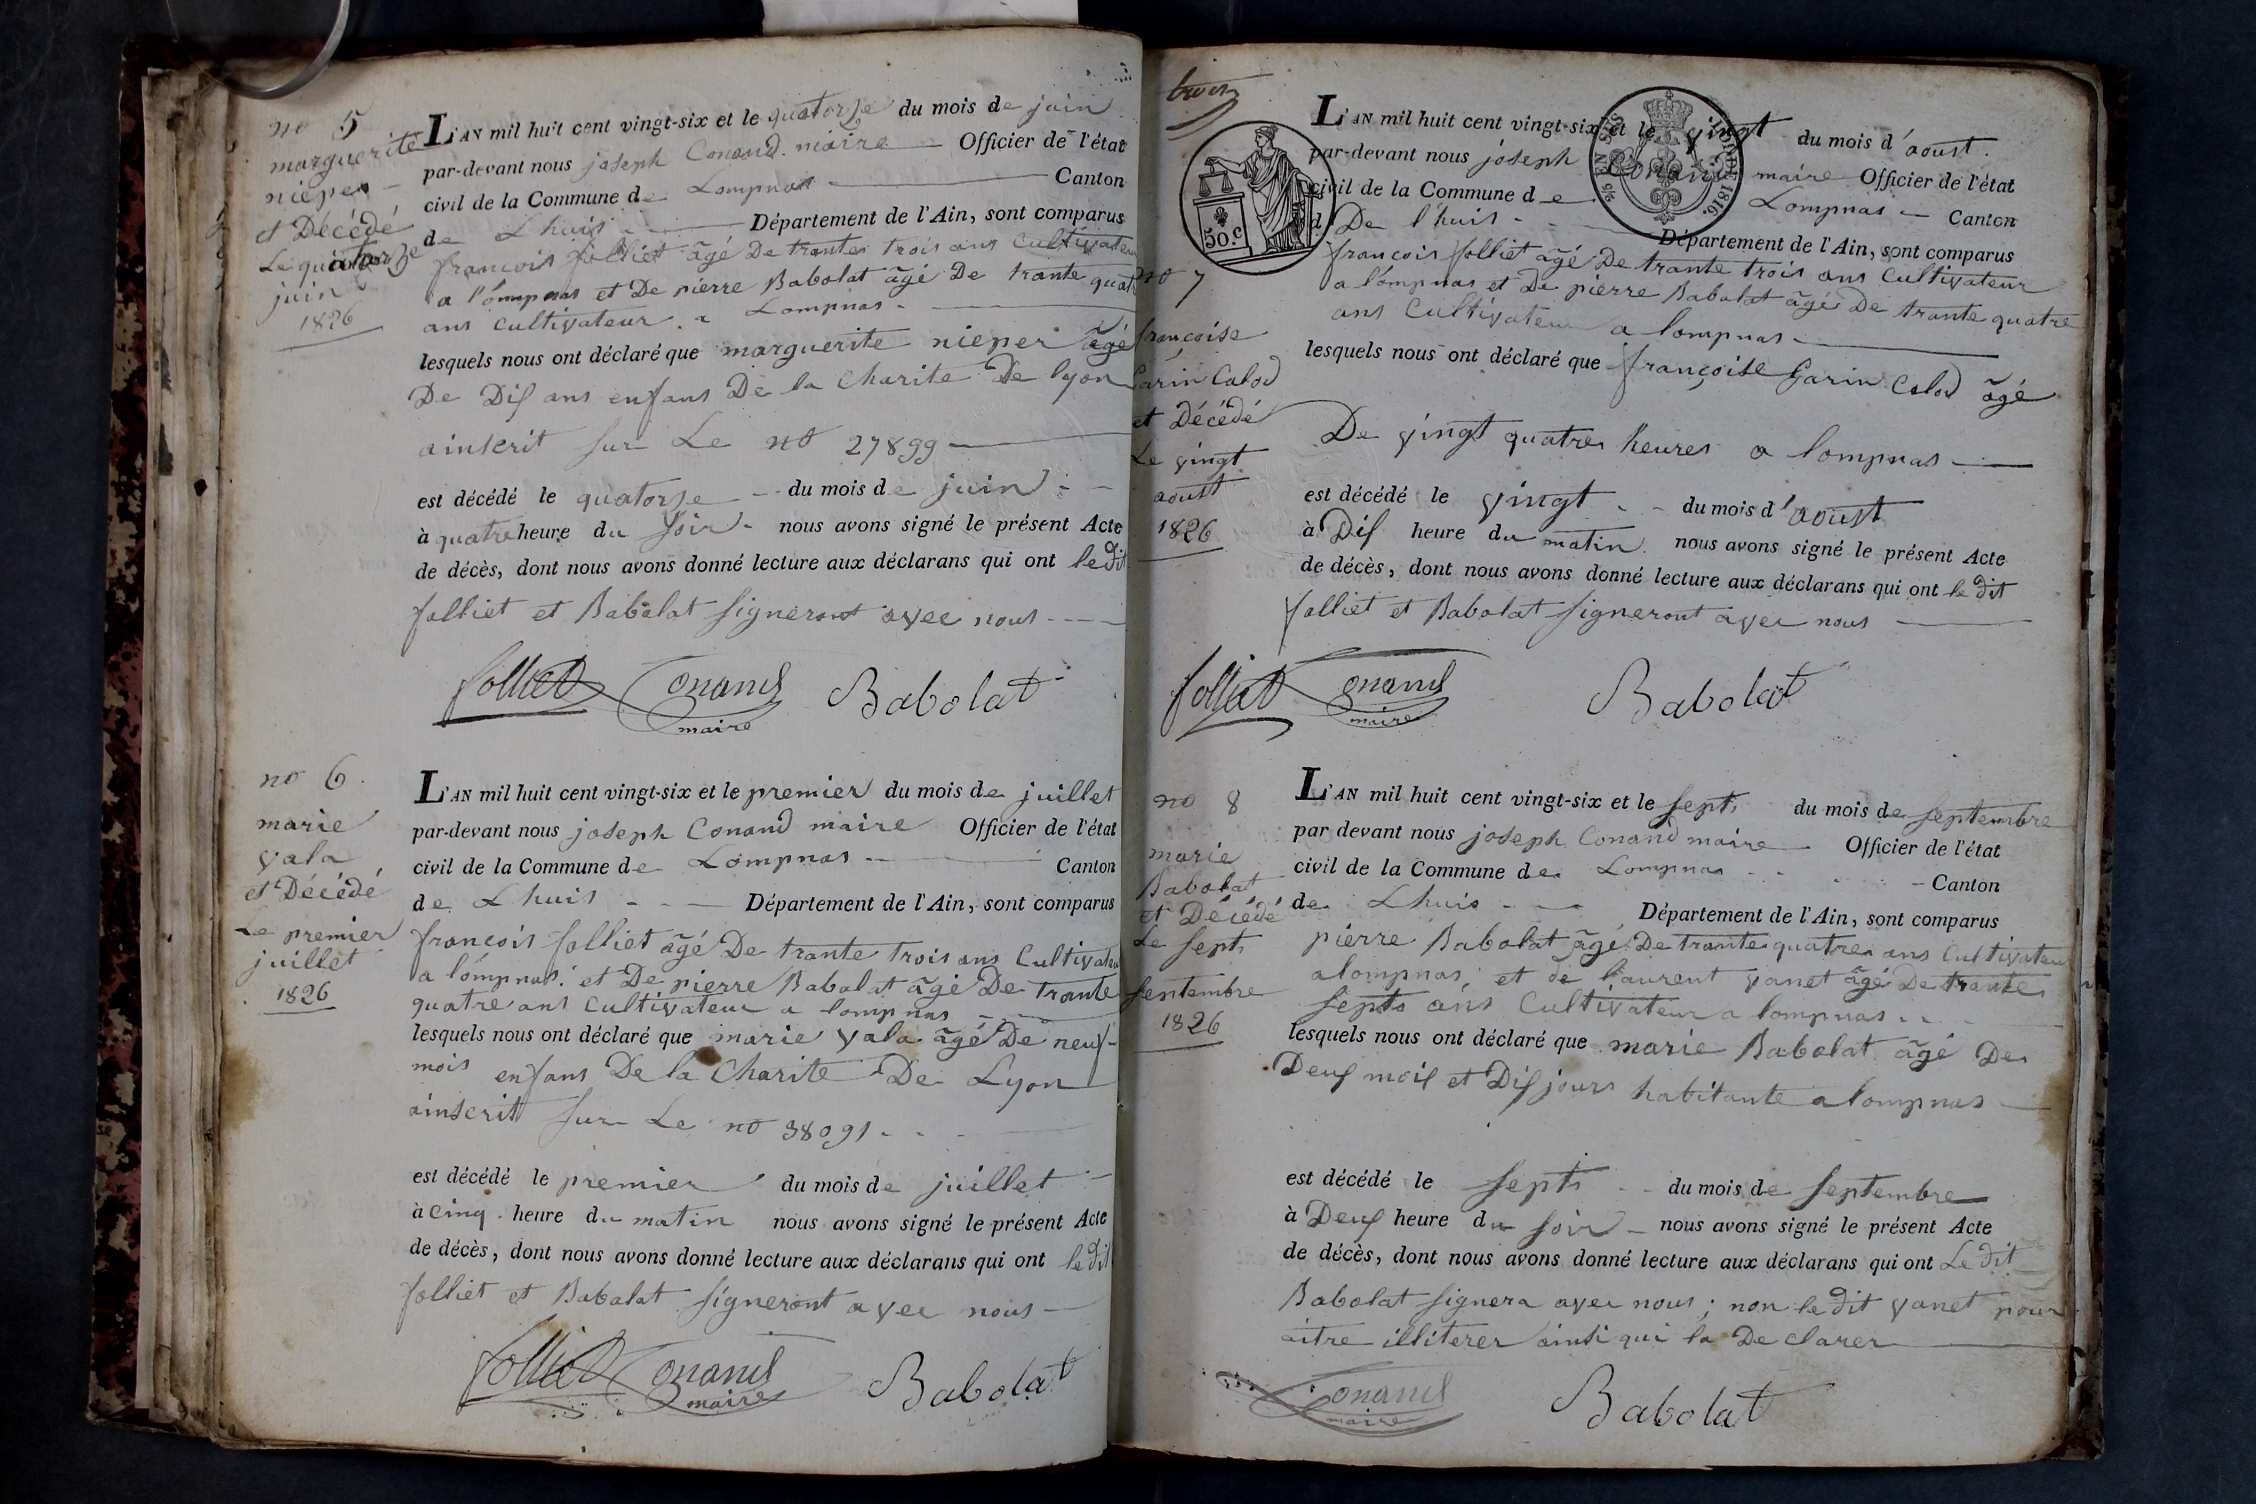 no 5
marguerite
nieper
et Décédé
Le quatorze
juin
1826
L'AN mil huit cent vingt-six et le quatorze du mois de juin
par-devant nous joseph Conand maire Officier de l'état
civil de la Commune de Lompnas Canton
de Lhuis Département de l'Ain, sont comparus
francois folliet âgé De trante trois ans Cultivateur
a lompnas et De pierre Babolat âgé De trante quatre
ans cultivateur a Lompnas
lesquels nous ont déclaré que marguerite nieper âgé
De Dis ans enfans De la Charite De lyon
ainscrit sur Le no 27899
est décédé le quatorze du mois de juin
à quatre heure du soir nous avons signé le présent Acte
de décès, dont nous avons donné lecture aux déclarans qui ont le dit
folliet et Babolat signeront avec nous
folliet Conand maire Babolat
no 6
marie
vala
et Décédé
Le premier
juillet
1826
L'AN mil huit cent vingt-six et le premier du mois de juillet
par-devant nous joseph Conand maire Officier de l'état
civil de la Commune de Lompnas Canton
de Lhuis Département de l'Ain, sont comparus
francois folliet âgé De trante trois ans Cultivateur
a lompnas et De pierre Babolat âgé De trante
quatre ans Cultivateur a lompnas
lesquels nous ont déclaré que marie vala âgé De neuf
mois enfans De la Charite De Lyon
ainscrit sur Le no 38091
est décédé le premier du mois de juillet
à cinq heure du matin nous avons signé le présent Acte
de décès, dont nous avons donné lecture aux déclarans qui ont le dit
folliet et Babolat signeront avec nous
folliet Conand maire Babolat
trois
50.c
EN SUS
TODDE 1816.
no 7
françoise
Garin Calod
et Décédé
Le vingt
aoust
1826
L'AN mil huit cent vingt-six et le vingt du mois d'aoust
par-devant nous joseph Conand maire Officier de l'état
civil de la Commune de Lompnas Canton
d De l'huis Département de l'Ain, sont comparus
francois folliet âgé De trante trois ans Cultivateur
a lompnas et De pierre Babolat âgé De trante quatre
ans Cultivateur a lompnas
lesquels nous ont déclaré que françoise Garin Calod âgé
De vingt quatre heures a lompnas
est décédé le vingt du mois d'aoust
à Dis heure du matin nous avons signé le présent Acte
de décès, dont nous avons donné lecture aux déclarans qui ont le dit
folliet et Babolat signeront avec nous
folliet Conand maire Babolat
no 8
marie
Babolat
et Décédé
Le sept
septembre
1826
L'AN mil huit cent vingt-six et le sept du mois de septembre
par devant nous joseph Conand maire Officier de l'état
civil de la Commune de Lompnas Canton
de Lhuis Département de l'Ain, sont comparus
pierre Babolat âgé De trante quatre ans Cultivateur
a lompnas et de laurent vanet âgé De trante
septs ans Cultivateur a lompnas
lesquels nous ont déclaré que marie Babolat âgé De
Deus mois et Dis jours habitante a lompnas
est décédé le sept du mois de septembre
à Deus heure du soir nous avons signé le présent Acte
de décès, dont nous avons donné lecture aux déclarans qui ont Le dit
Babolat signera avec nous; non le dit vanet pour
aitre illiterer ainsi qui la De clarer
Conand maire Babolat